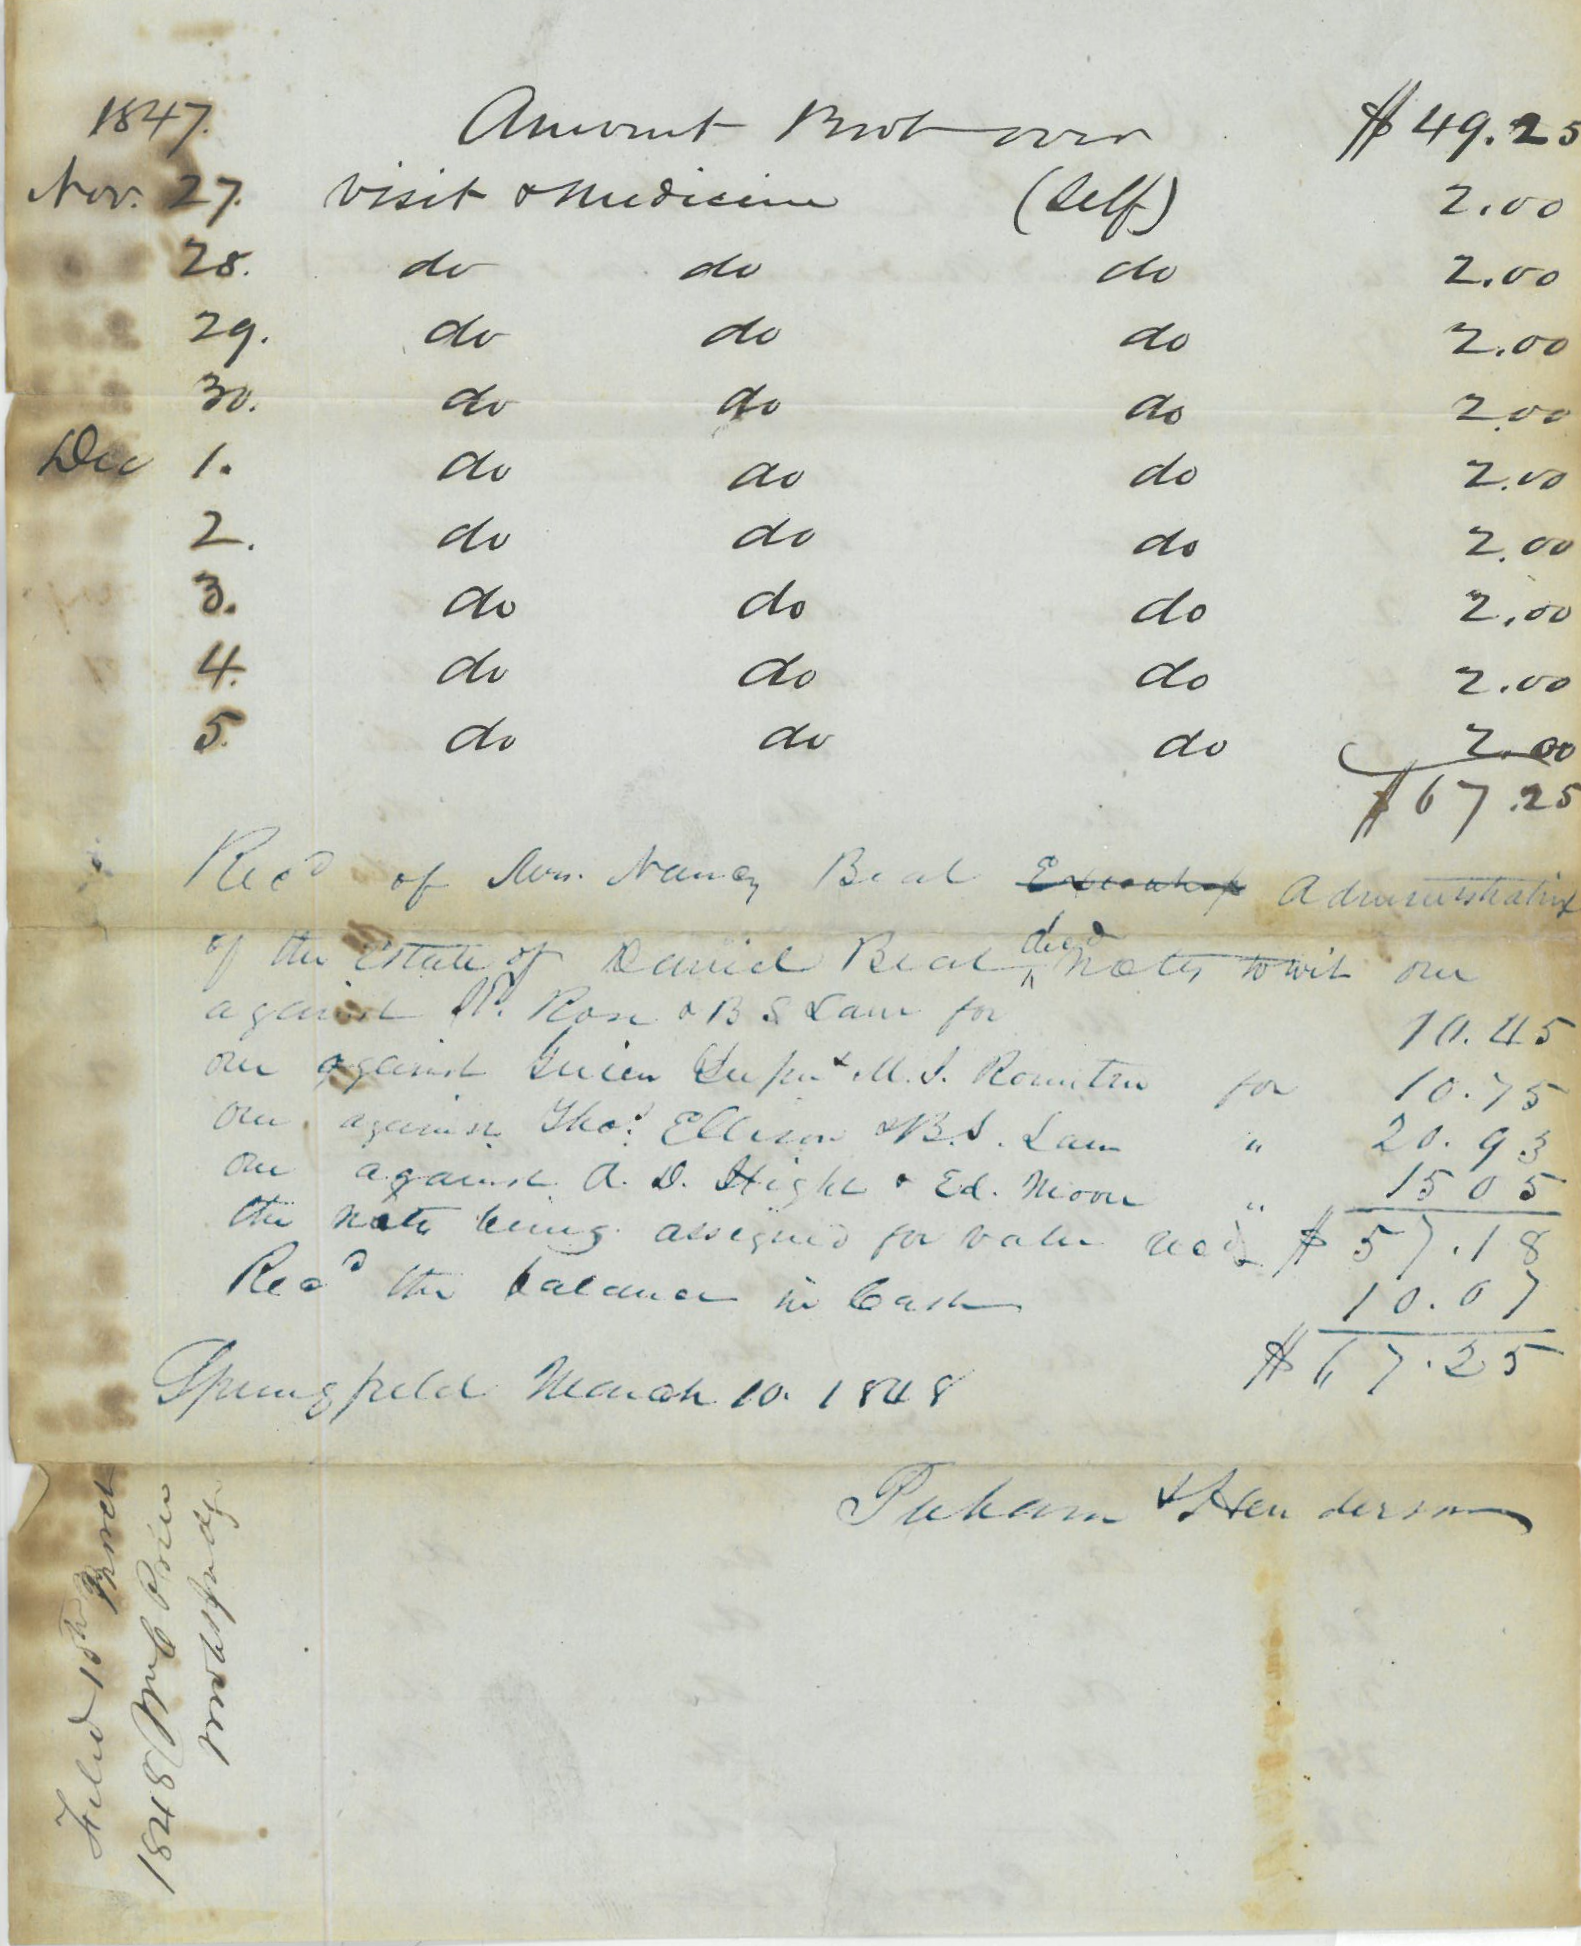 1847. Amount Brot over $49.25
Nov. 27. visit & Medicine (Self) 2.00
28. do do do 2.00
29. do do do 2.00
30. do do do 2.00
Dec 1. do do do 2.00
2. do do do 2.00
3. do do do 2.00
4. do do do 2.00
5. do do do 2.00
$67.25
Recd of Mrs. Nancy Beal Administratrix
of the Estate of Daniel Beal decd Notes to wit one
against Rose & B S Lain for 10.45
one against Green & M. J. Rountree for 10.75
one against Thos. Ellison & B. S. Lain " 20.93
one against A. D. Hight & Ed. Moore " 15 05
the Notes being assigned for value recd $57.18
Recd the balance in Cash 10.07
$67.25
Springfield March 10. 1848
& Henderson
Filed 10th March
1848 Wm C Price
Probate Judge